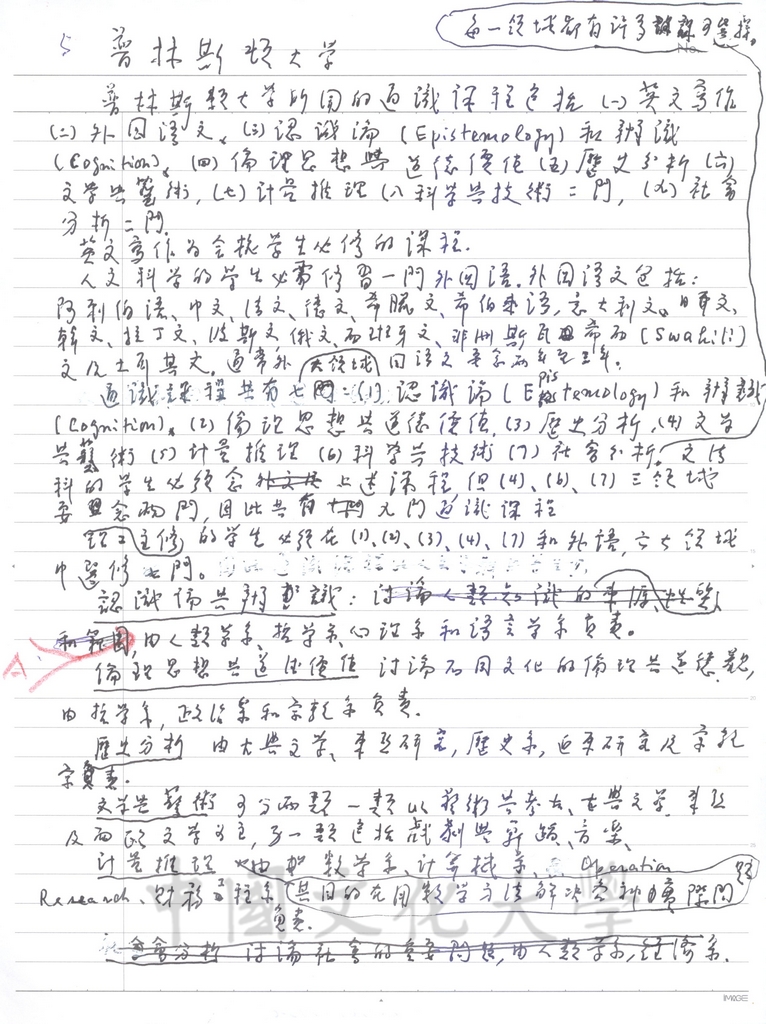 每一領域都有許多課可選擇。
5 普林斯頓大学
普林斯頓大学所開的通識課程包括(一)英文寫作
(二)外国語文、(三)認識論(Epistemology)和辨識
(Cognition)、(四)倫理思想與道德價值(五)歷史分析(六)
文学與藝術,(七)計量推理(八)科学與技術二門,(九)社會
分析二門
英文寫作為全校学生必修的課程.
人文科学的学生必需修習一門外国語.外国語文包括:
阿剌伯語、中文、法文、德文、希臘文、希伯來語,意大利文、日本文、
韓文、拉丁文、波斯文,俄文、西班牙文、非洲斯瓦希而(Swahili)
文及土耳其文。通常外国語文要念 至 年。
大領域
通識課程共有七 :(1)認識論(Epistemology)和辨識
(Cognition)、(2)倫理思想與道德價值,(3)歷史分析,(4)文学
與藝術(5)計量推理(6)科学與技術(7)社會分析。文法
科的学生必須念上述課程但(4)、(6)、(7)三領域
要念兩門,因此共有九門通識課程
理工主修的学生必須在(1)、(2)、(3)、(4)、(7)和外語,六大領域
中選修七門。
認識論與辨識:討論人類知識的來源、性質、
和範圍,由人類学系、哲学系、心理系和語言学系負責。
倫理思想與道德價值 討論不同文化的倫理與道德觀,
由哲学系,政治系和宗教系負責.
歷史分析 由古典文学、東亞研究,歷史系,近東研究及宗教
系負責.
文学與藝術 可分兩類 一類以藝術與考古、古典文学、東亞
及西欧文学为主,另一類包括戲劇與舞蹈、音樂、
計量推理 由 数学系、計算机系、Operation
Research、財務工程系 其目的在用数学方法解决各種實際問題
負責.
社會分析 討論社會的重要問題,由人類学系,經濟系.
中國文化大學
IMAGE